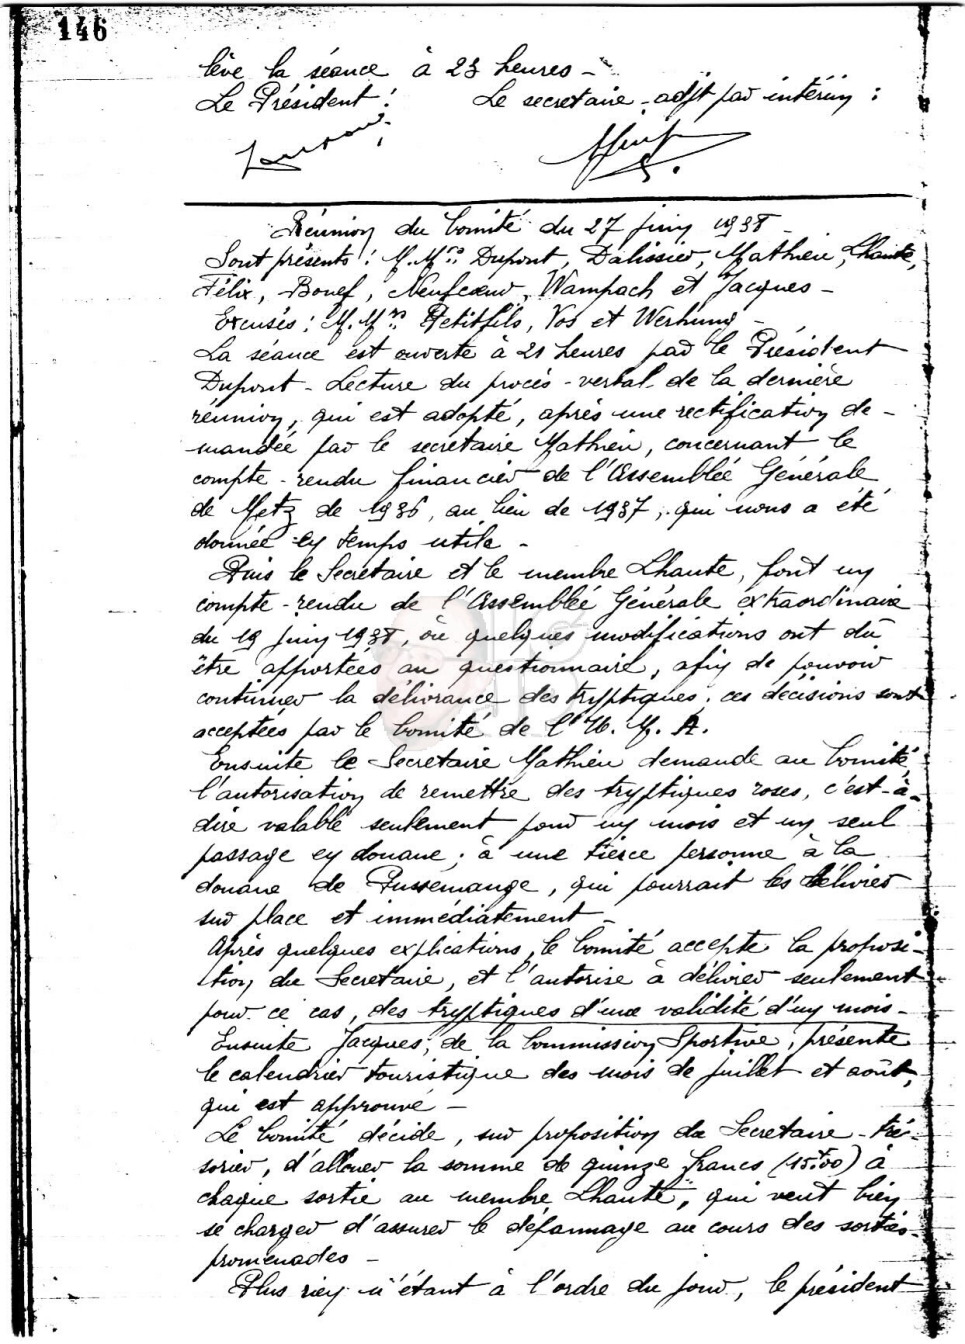 146
lève la séance à 23 heures –
Le Président : Le secrétaire-adjt par intérim :
Réunion du Comité du 27 juin 1938 –
Sont présents : M.Mrs Dupont, Dalissier, Mathieu, Lhante,
Félix, Bouef, Neufcoeur, Wampach et Jacques –
Excusés : M.Mrs Petitfils, Vos et Werhung –
La séance est ouverte à 21 heures par le Président
Dupont – Lecture du procès-verbal de la dernière
réunion, qui est adopté, après une rectification de-
mandée par le secrétaire Mathieu, concernant le
compte-rendu financier de l'Assemblée Générale
de Metz de 1936, au lieu de 1937, qui nous a été
donnée en temps utile –
Puis le Secrétaire et le membre Lhante, font un
compte-rendu de l'Assemblée Générale extraordinaire
du 19 juin 1938, où quelques modifications ont dû
être apportées au questionnaire, afin de pouvoir
continuer la délivrance des tryptiques ; ces décisions sont
acceptées par le Comité de l'U. M. A.
Ensuite le Secrétaire Mathieu demande au Comité
l'autorisation de remettre des tryptiques roses, c'est-à-
dire valable seulement pour un mois et un seul
passage en douane ; à une tierce personne à la
douane de Pussemange, qui pourrait les délivrer
sur place et immédiatement –
Après quelques explications, le Comité accepte la proposi-
tion du Secrétaire, et l'autorise à délivrer seulement
pour ce cas, des tryptiques d'une validité d'un mois –
Ensuite Jacques, de la Commission Sportive, présente
le calendrier touristique des mois de juillet et août,
qui est approuvé –
Le Comité décide, sur proposition du Secrétaire-tré-
sorier, d'allouer la somme de quinze francs (15f00) à
chaque sortie au membre Lhante, qui veut bien
se charger d'assurer le dépannage au cours des sorties-
promenades –
Plus rien n'étant à l'ordre du jour, le président